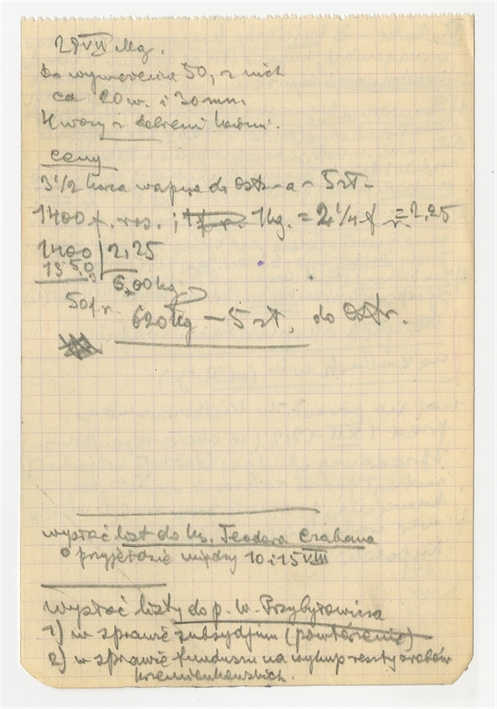 29 VII Mg.
do wymierzenia 50, z nich
ca 20 w. i 30 mm
4 wozy z dobremi końmi.
ceny
3 1/2 korca wapna do Ostr-a - 5 zł-
1400 f. ros. ; 1 kg. = 2 1/4 f = 2,25
1400 | 2,25
13 5,0
6,00 kg
50 f. r.
620 kg - 5 zł. do Ostr.
wysłać list do ks. Teodora
o przyjeździe między 10 i 15 VIII
wysłać listy do p. W. Przybyłowicza
1) w sprawie subsydjum (powtórzenie)
2) w sprawie funduszu na wykup reszty zrobów